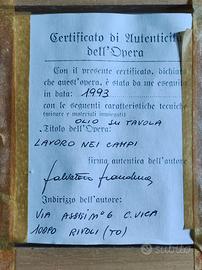 Certificato di Autenticità
dell'Opera
Con il presente certificato, dichiaro
che quest'opera, è stata da me eseguita
in data: 1993
con le seguenti caratteristiche tecniche
(misure e materiali impiegati)
OLIO SU TAVOLA
Titolo dell'Opera:
LAVORO NEI CAMPI
firma autentica dell'autore
Salvatore
Indirizzo dell'autore:
VIA ASSISI N° 6 C. VICA
10090 RIVOLI (TO)
subito